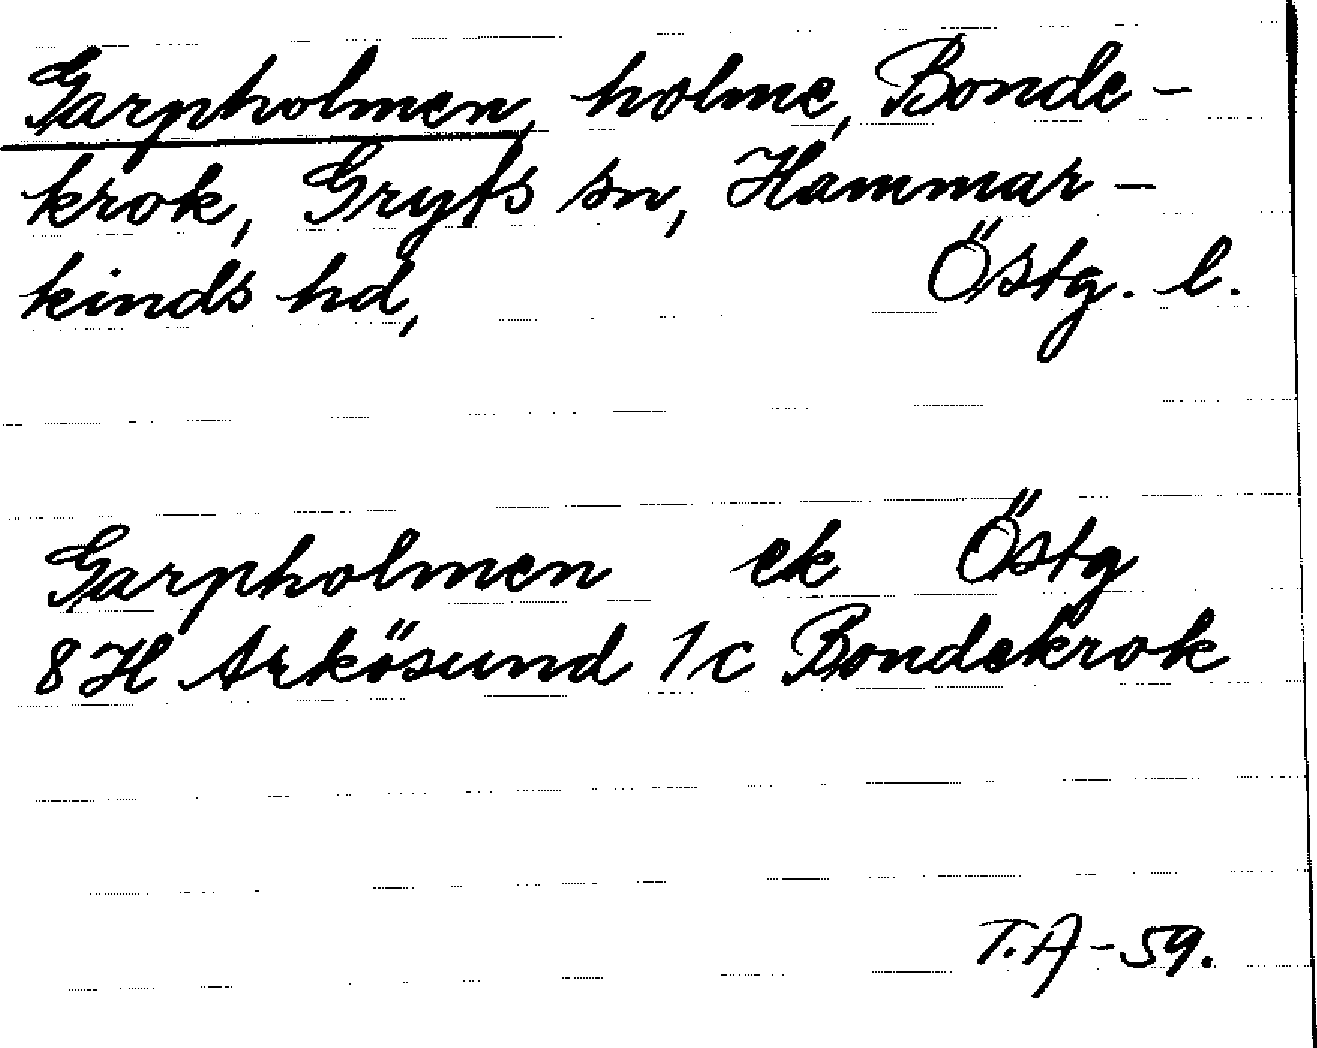 Garpholmen, holme, Bonde-
krok, Gryts sn, Hammar-
kinds hd, Östg. l.
Garpholmen ek Östg
8H Arkösund 1c Bondekrok
T.A-59.